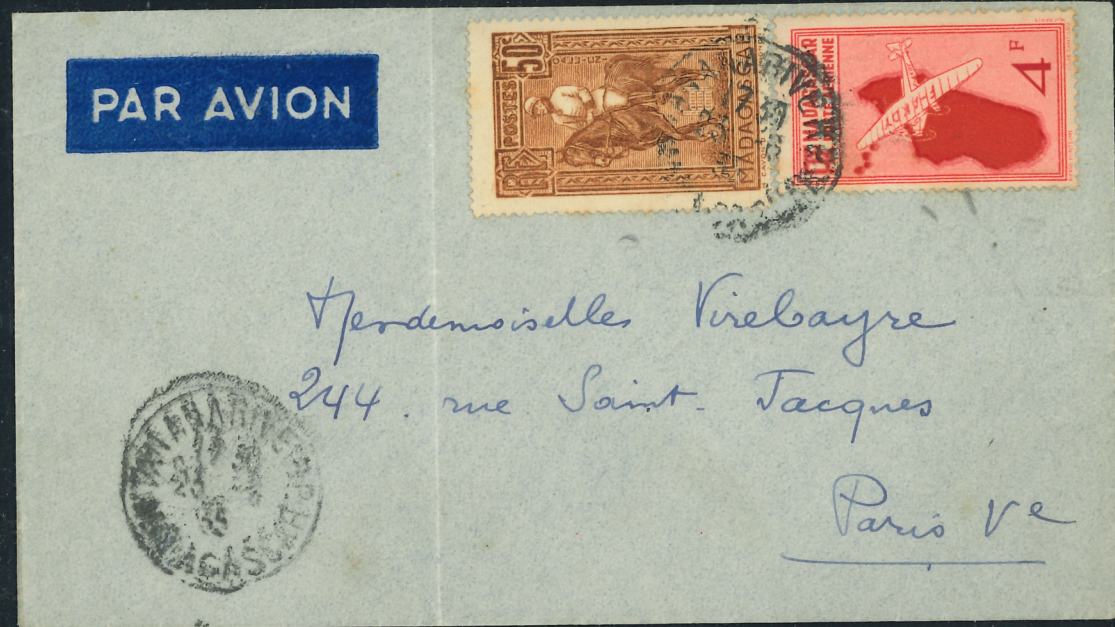 PAR AVION
RF POSTES 50c
MADAGASCAR
MADAGASCAR
POSTE AÉRIENNE
4F
Mesdemoiselles Virebayre
244. rue Saint-Jacques
Paris Ve
TANANARIVE R.P.
MADAGASCAR